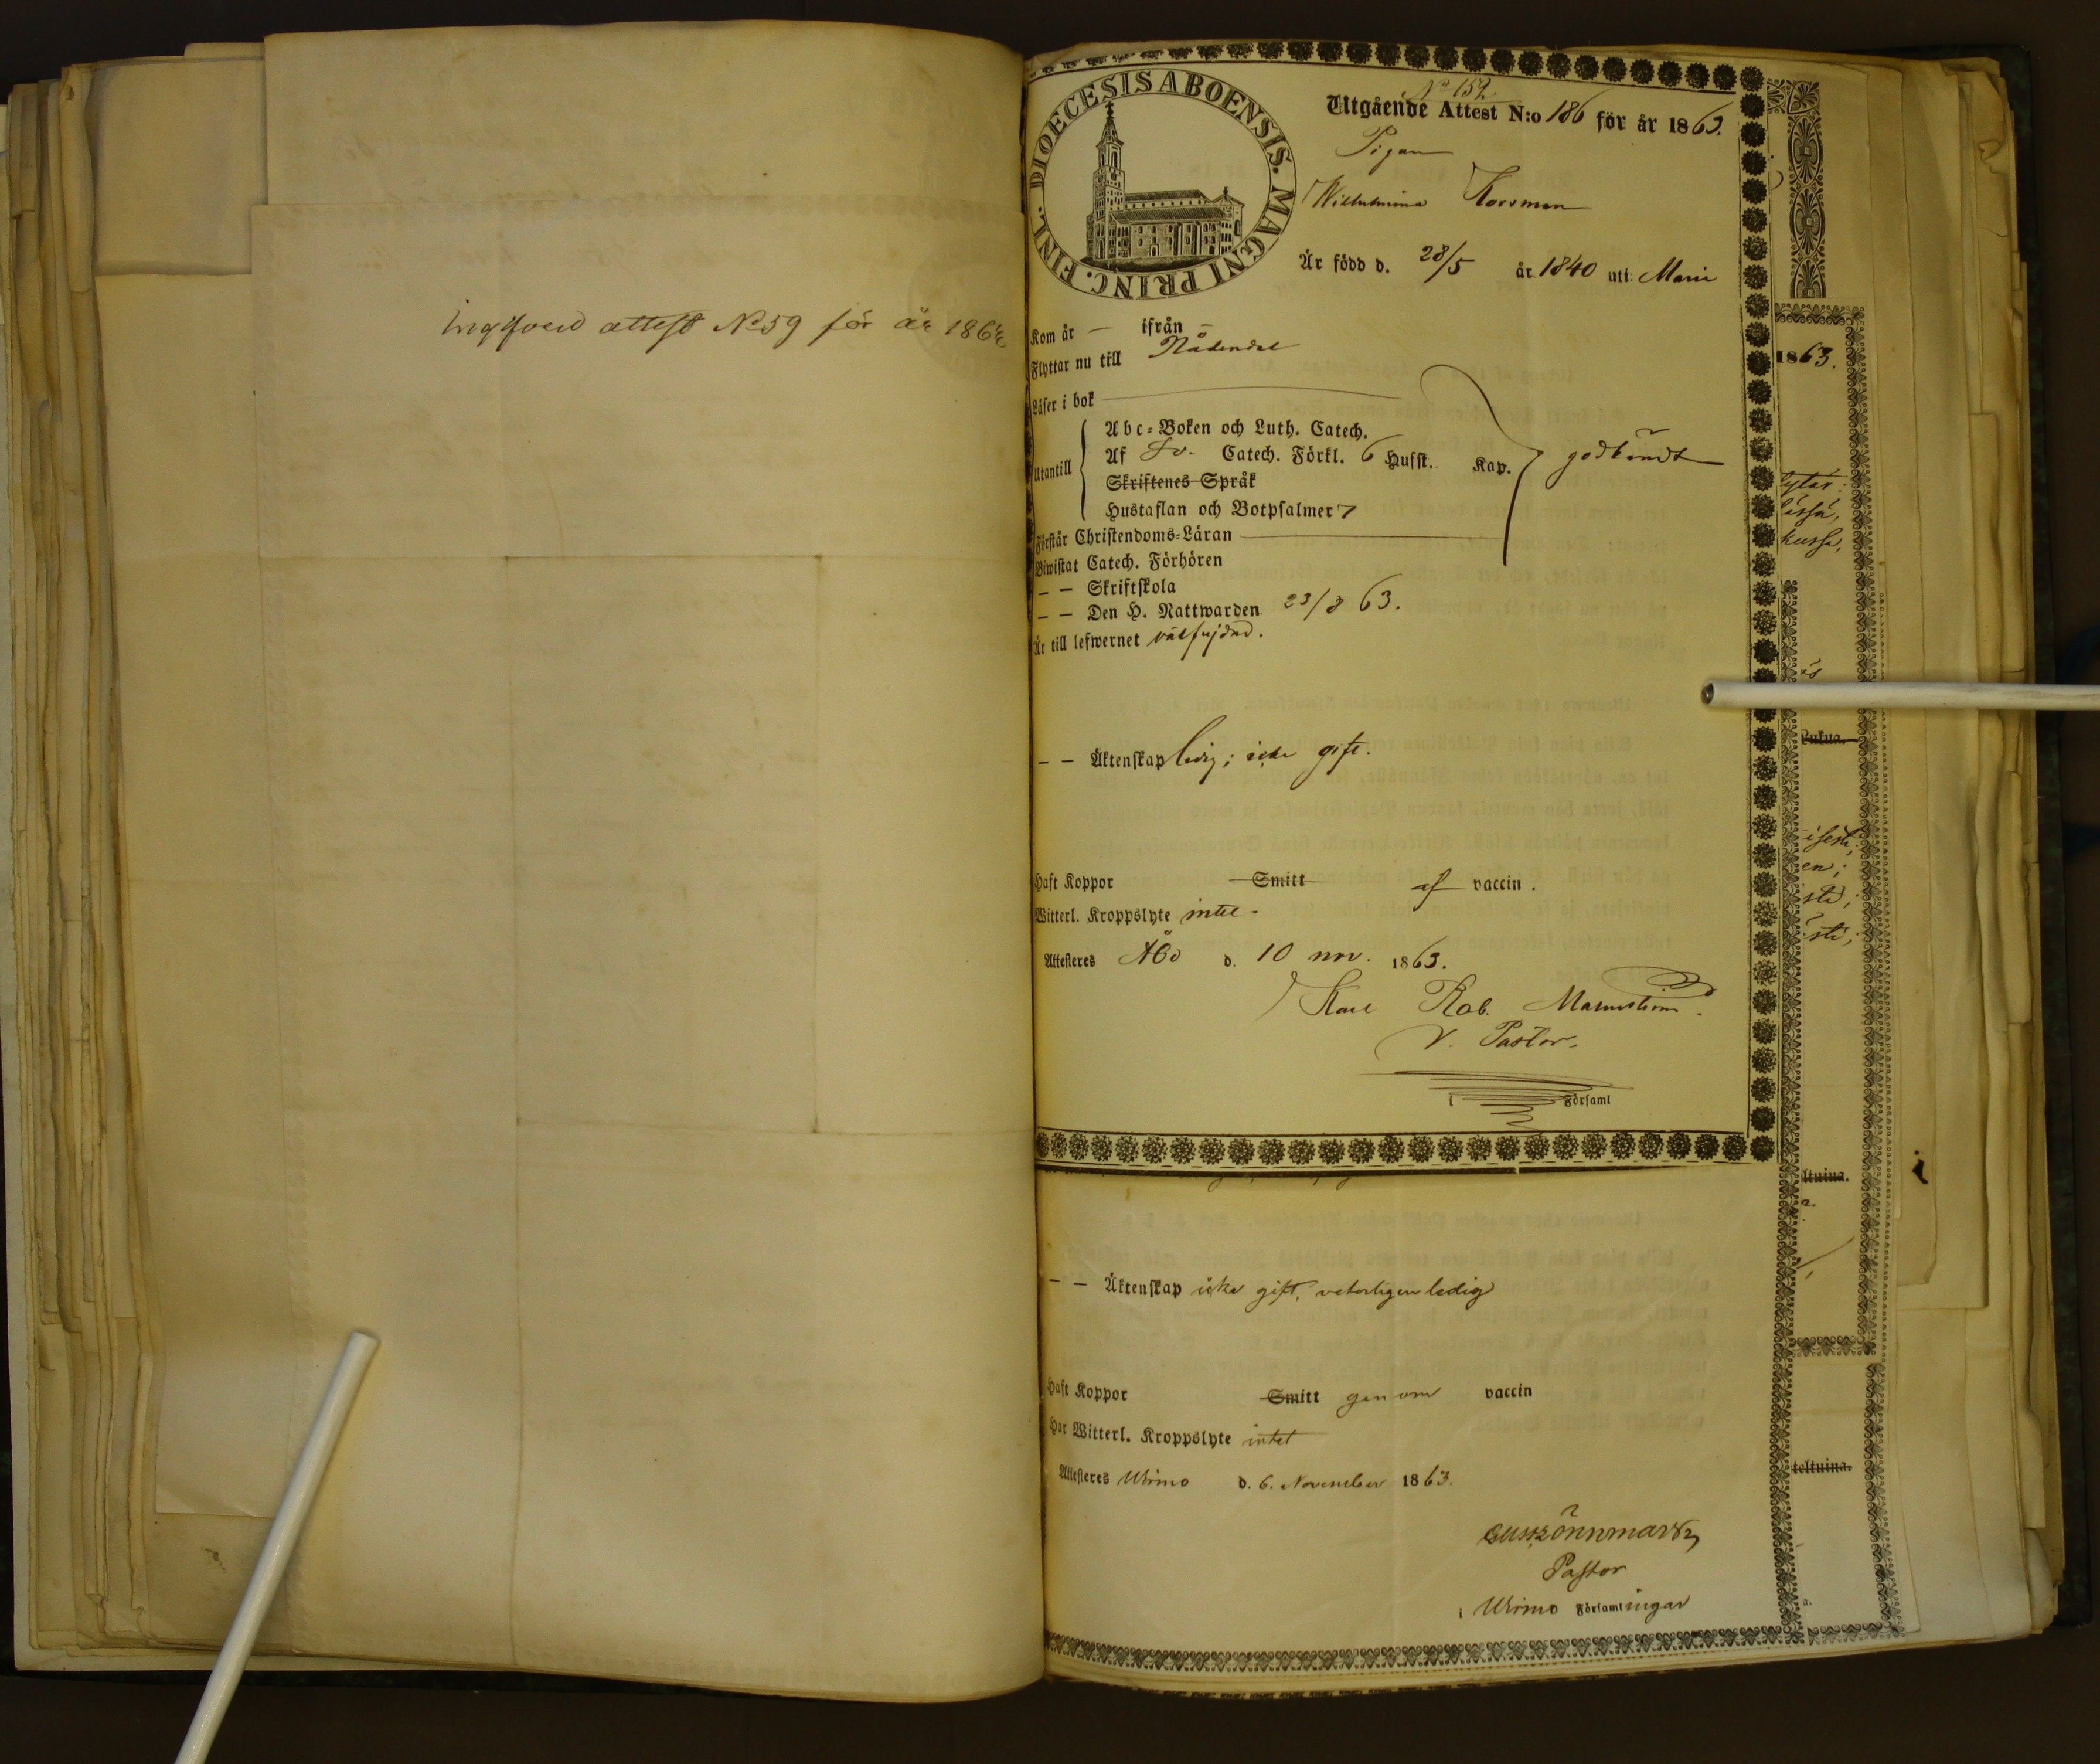 Inggående attest No 59 för år 1863
DIOECESIS ABOENSIS. MAGNI PRINC. FINL.
No 159.
Utgående Attest N:o 186 för år 1863.
Pigan
Wilhelmina Korsman
Är född d. 28/5 år 1840 uti Marie
Kom år — ifrån —
Flyttar nu till Nådendal
Läser i bok
Utantill
Abc-Boken och Luth. Catech.
Af Sv. Catech. Förkl. 6 Hufst. Kap. godkändt
Skriftenes Språk
Hustaflan och Botpsalmer 7
Förstår Christendoms-Läran
Biwistat Catech. Förhören
— — Skriftskola
— — Den H. Nattwarden 23/8 63.
Är till lefwernet välfrejdad.
— — Äktenskap ledig; icke gift.
Haft Koppor Smitt af vaccin.
Witterl. Kroppslyte intet.
Attesteres Åbo d. 10 nov. 1863.
Karl Rob. Malmström.
V. Pastor.
i Församl
— — Äktenskap icke gift, veterligen ledig
Haft Koppor Smitt genom vaccin
Har Witterl. Kroppslyte intet
Attesteres Wirmo d. 6. November 1863.
Pastor
i Wirmo Församlingar
1863.
Lukua.
ltuina.
teltuina.